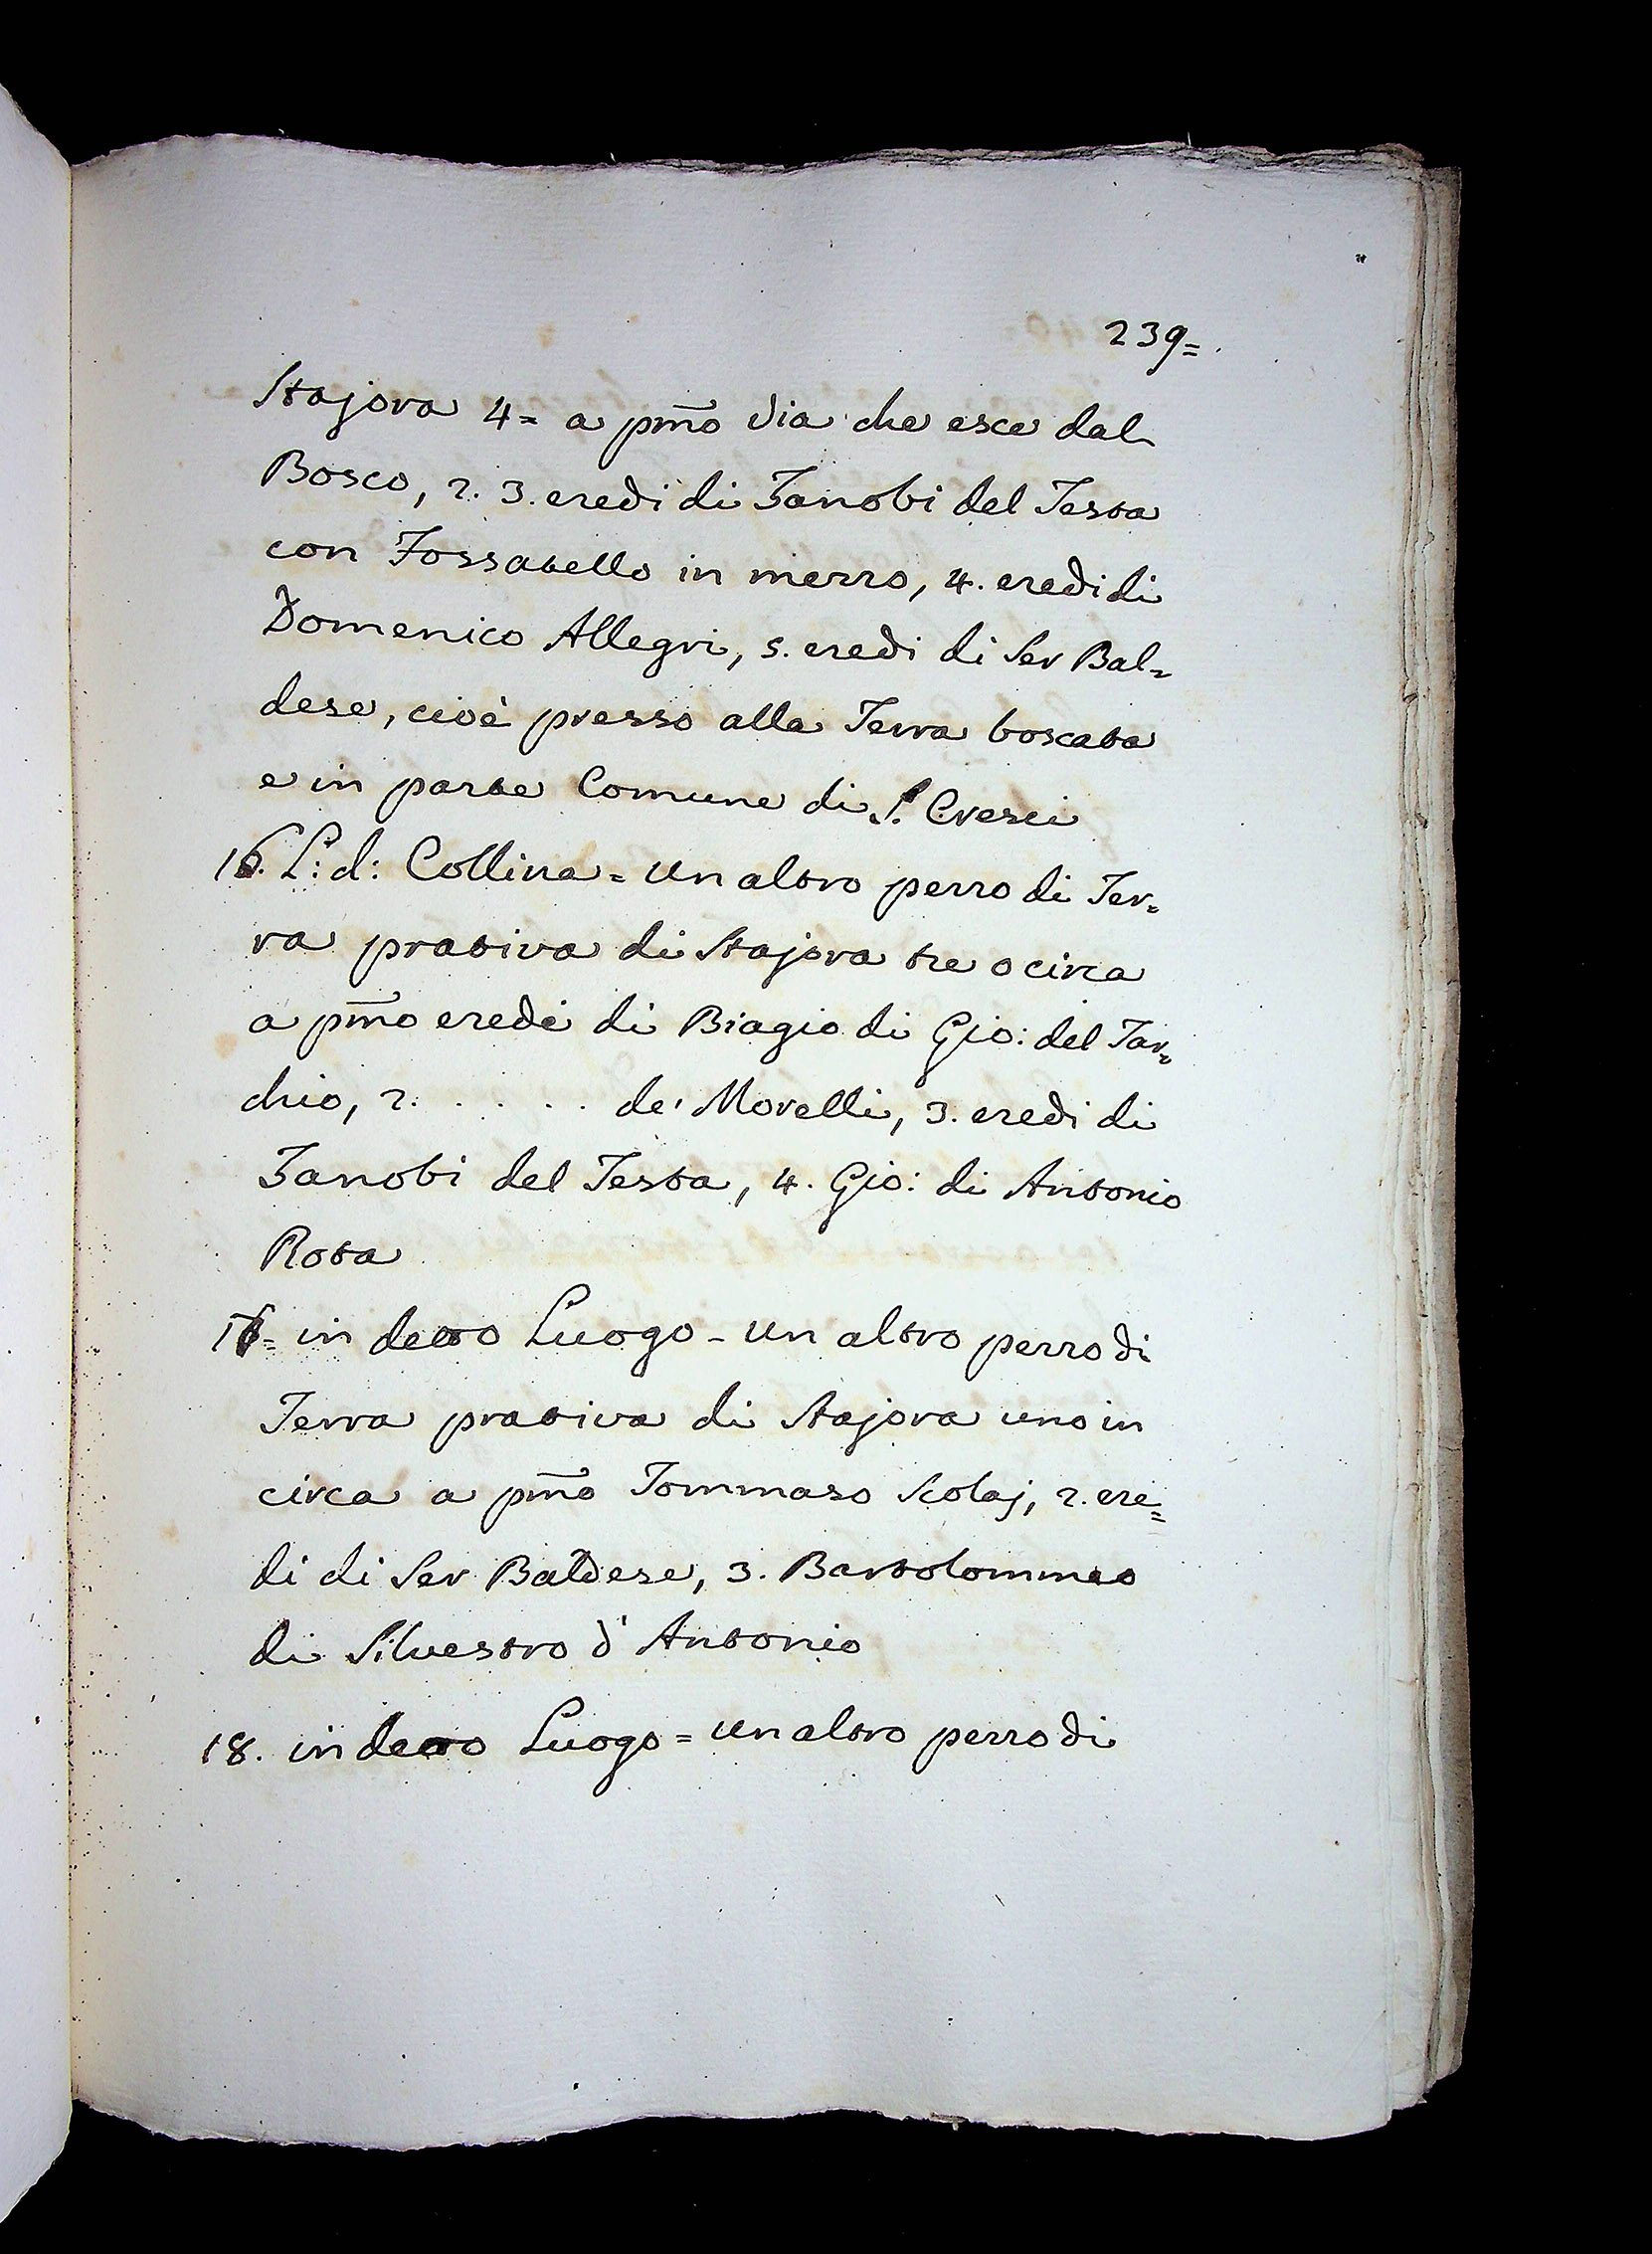 239=
Stajora 4= a pm̃o Via che esce dal
Bosco, 2. 3. eredi di Zanobi del Testa
con Fossatello in mezzo, 4. eredi di
Domenico Allegri, 5. eredi di Ser Bal=
dese, cioè presso alla Terra boscata
e in parte Comune di S. Cresci
16. L: d: Collina = Un altro pezzo di Ter=
ra prativa di Stajora tre o circa
a pm̃o eredi di Biagio di Gio: del Tac=
chio, 2. . . . . . de' Morelli, 3. eredi di
Zanobi del Testa, 4. Gio: di Antonio
Rota
17= in detto Luogo = Un altro pezzo di
Terra prativa di Stajora uno in
circa a pm̃o Tommaso Scolaj, 2. ere=
di di Ser Baldese, 3. Bartolommeo
di Silvestro d'Antonio
18. in detto Luogo = Un altro pezzo di